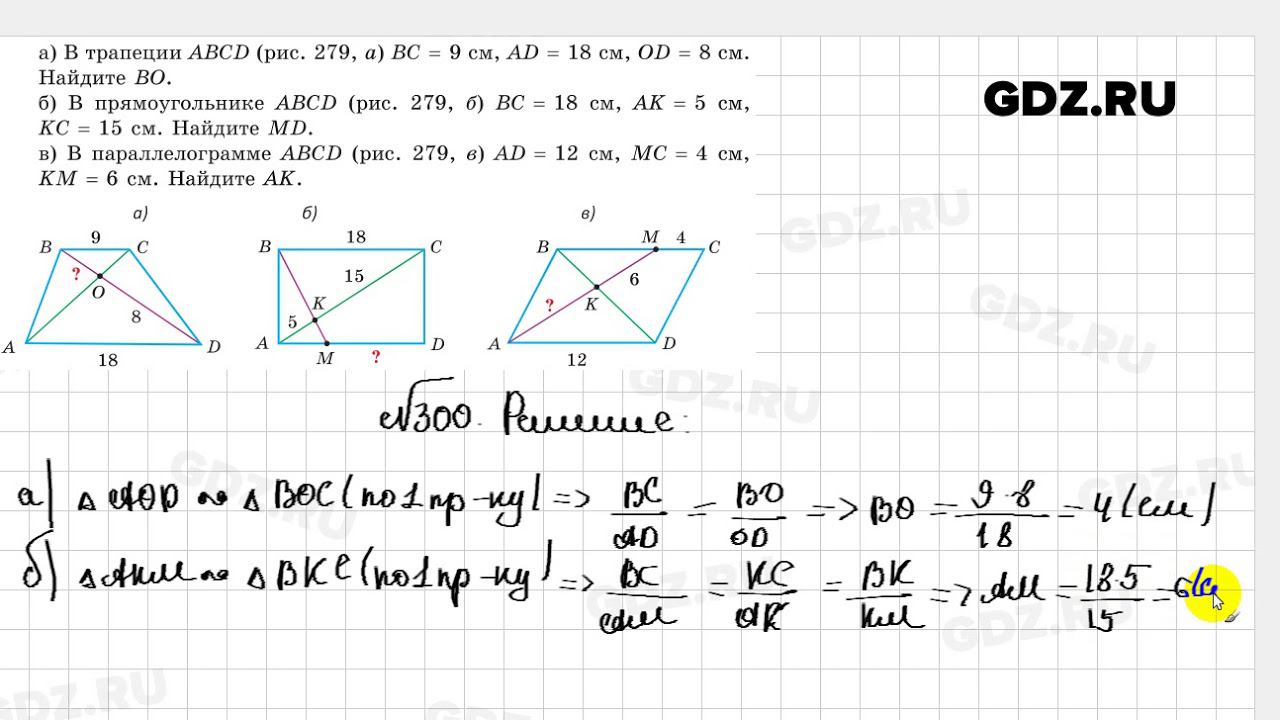 а) В трапеции ABCD (рис. 279, а) BC = 9 см, AD = 18 см, OD = 8 см.
Найдите BO.
б) В прямоугольнике ABCD (рис. 279, б) BC = 18 см, AK = 5 см,
KC = 15 см. Найдите MD.
в) В параллелограмме ABCD (рис. 279, в) AD = 12 см, MC = 4 см,
KM = 6 см. Найдите AK.
GDZ.RU
а) б) в)
B 9 C ? O 8 A 18 D
B 18 C 15 K 5 A M ? D
B M 4 C 6 ? K A 12 D
№300. Решение:
а) △AOD ~ △BOC (по 1 пр-ку) => BC/AD = BO/OD => BO = 9·8/18 = 4 (см)
б) △AKM ~ △BKC (по 1 пр-ку) => BC/AM = KC/AK = BK/KM => AM = 18·5/15 = 6 (с
GDZ.RU
GDZ.RU
GDZ.RU
GDZ.RU
GDZ.RU
GDZ.RU
GDZ.RU
GDZ.RU
GDZ.RU